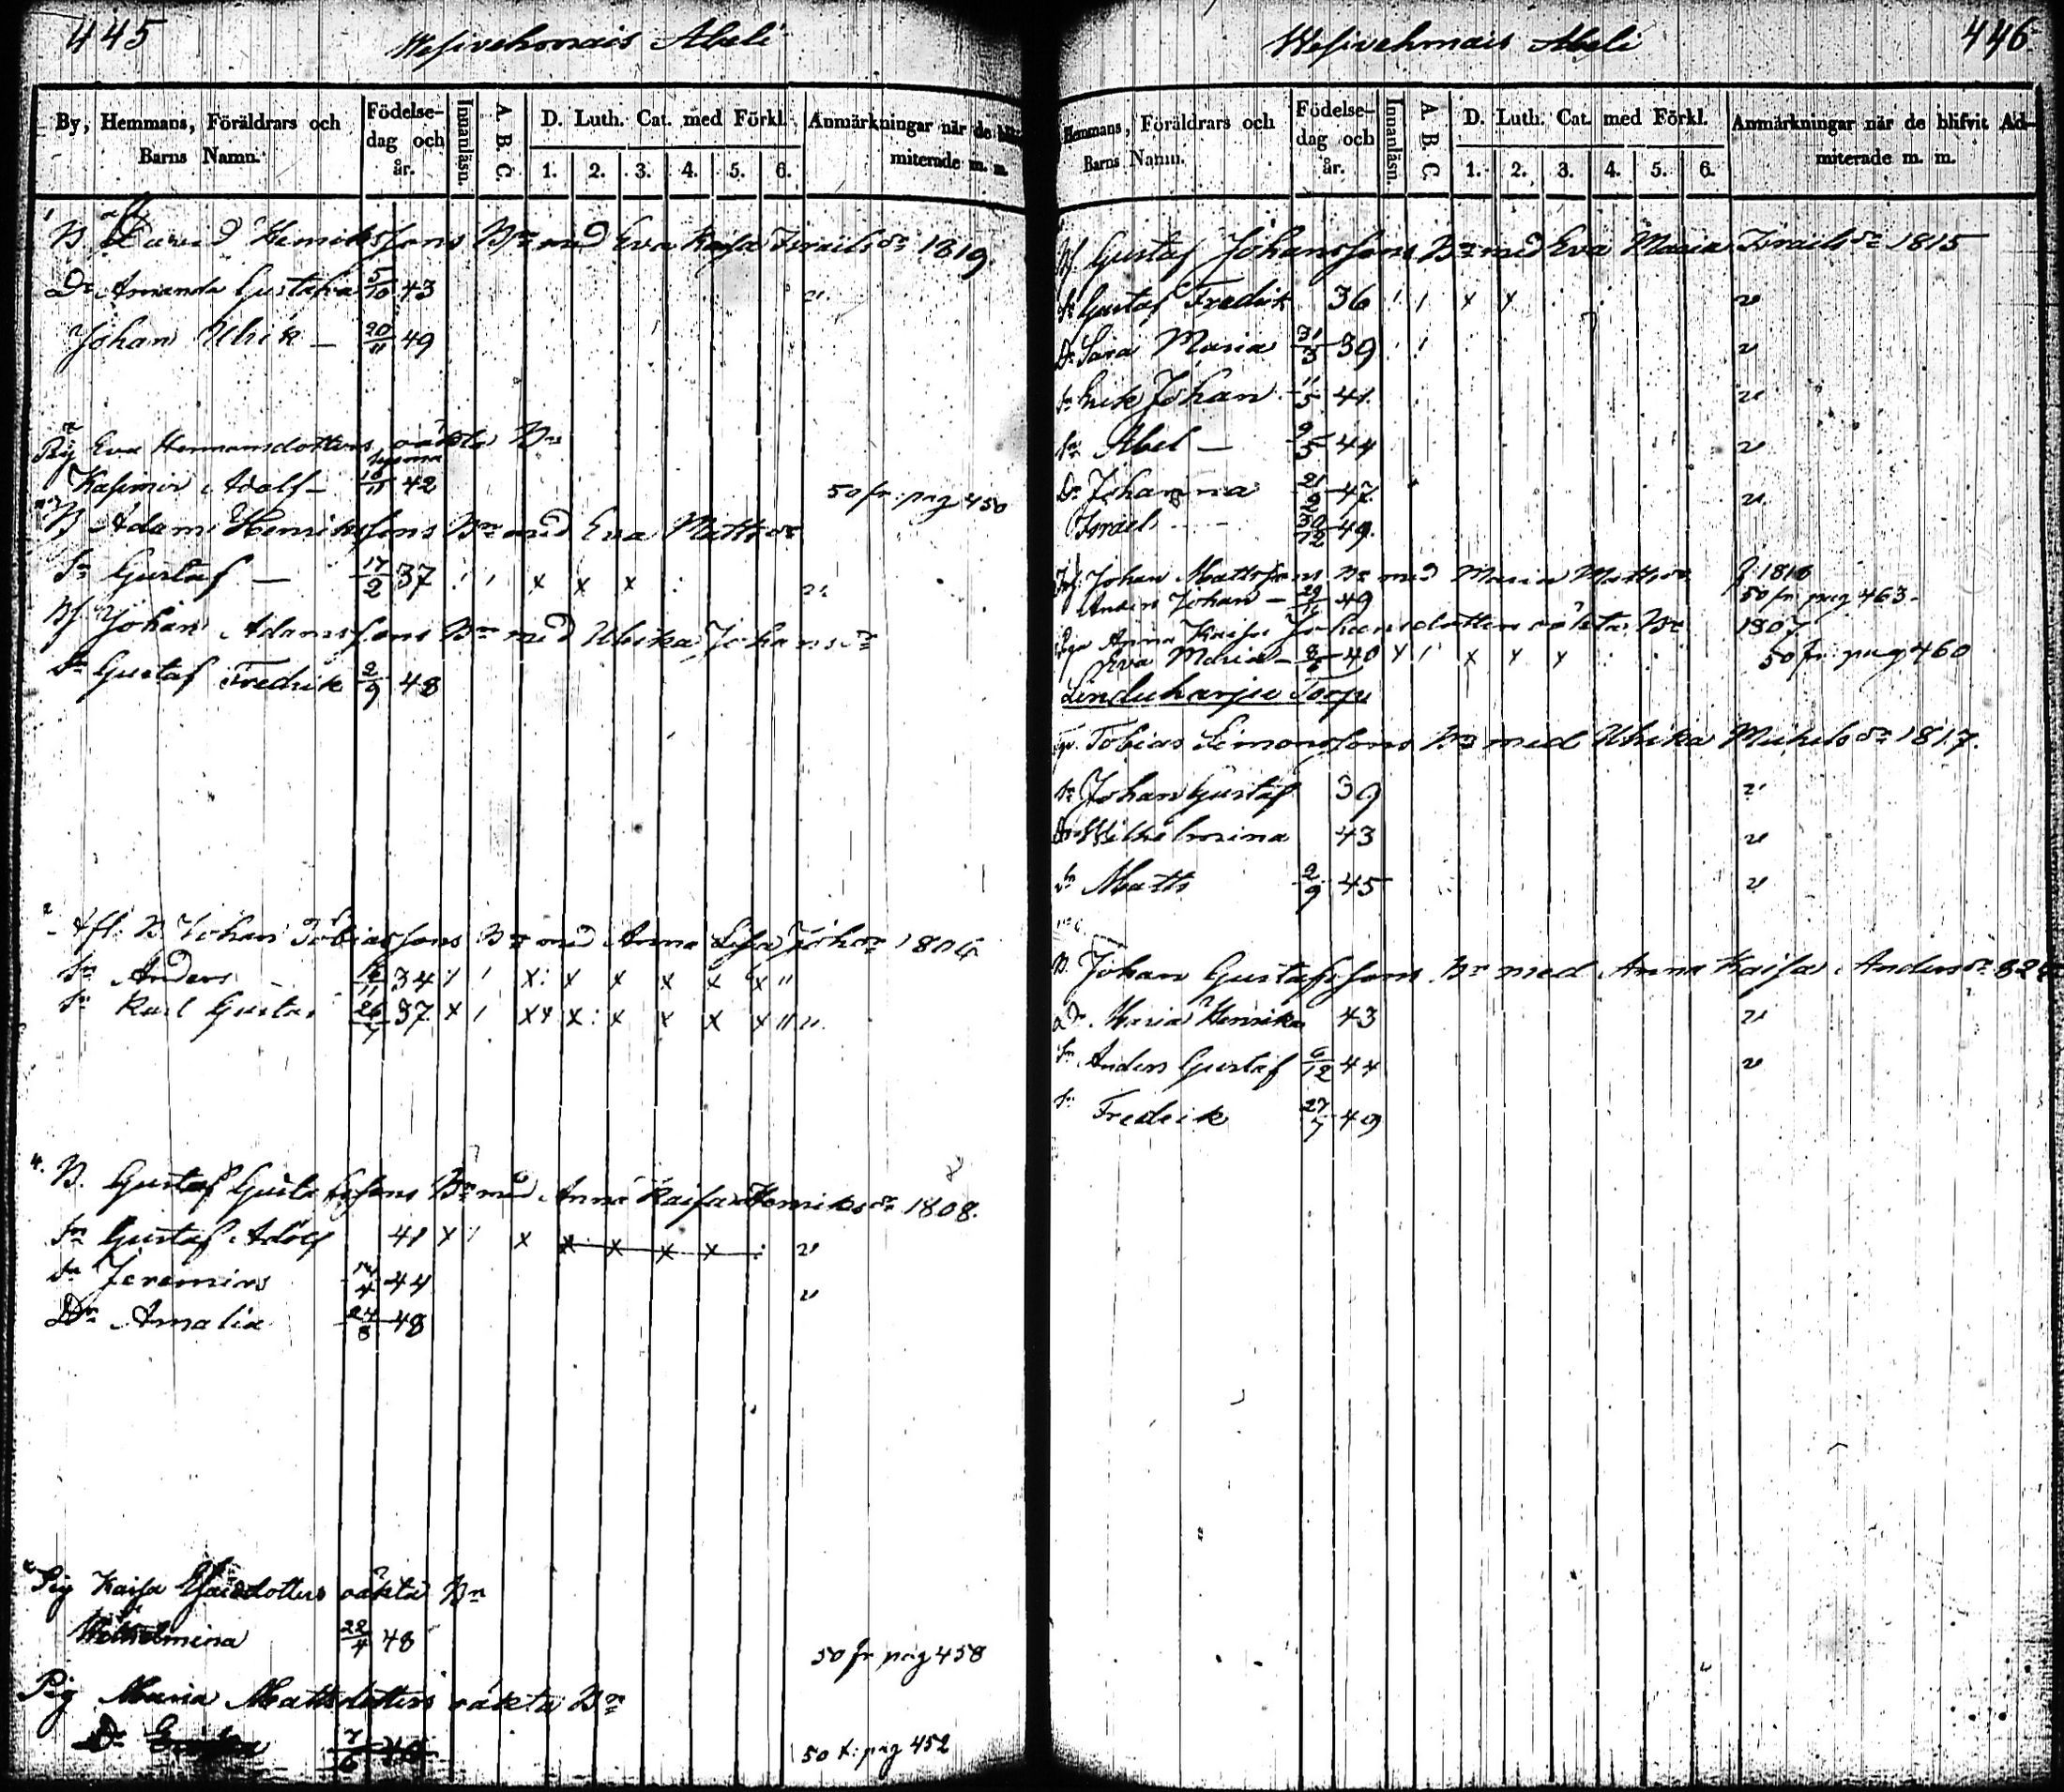 445
Wesivehmais Abeli
By, Hemmans, Föräldrars och Barns Namn.
Födelse-dag och år.
Innanläsn.
A B C.
D. Luth. Cat. med Förkl.
1. 2. 3. 4. 5. 6.
Anmärkningar när de
miterade m. m.
B David Henrikssons Bn med Eva Kajsa Israelsdr 1819.
Dr Amanda Gustafva 5/10 43 "
Johan Ulrik — 20/11 49
Pig Eva Hermansdotters oäkta Bn
Kasimir Adolf — 42 50 fr. pag 450
B Adam Henrikssons Bn med Eva Mattsdr
Sn Gustaf — 17/2 37 x x x "
Bf Johan Adamssons Bn med Ulrika Johansdr
Sn Gustaf Fredrik 2/9 48
Afl: B Johan Tobiassons Bn med Anna Lisa Johdr
Sn Anders 34 x: x x x x x "
Sn Karl Gustaf 37 x xx x: x x x x " "
4. B. Gustaf Gustafssons Bn med Anna Kaisa Henriksdr 1808.
Sn Gustaf Adolf 41 x x x x x x "
Sn Jeremias 44 "
Dr Amalia 24/8 48
Pig Kaisa dotters oäkta Bn
Wilhelmina 22/4 48 50 fr pag 458
Pig Maria Mattsdotters oäkta Bn
Dr 7/6 50 t: pag 452
446
Wesivehmais Abeli
Hemmans, Föräldrars och Barns Namn.
Födelse-dag och år.
Innanläsn.
A B C
D. Luth. Cat. med Förkl.
1. 2. 3. 4. 5. 6.
Anmärkningar när de blifvit Ad-
miterade m. m.
Bf Gustaf Johanssons Bn med Eva Maria Israelsdr 1815
Sn Gustaf Fredrik 36 x x "
Dr Sara Maria 31/3 39 "
Sn Erik Johan 11/5 41. "
Sn Abel — 9/5 44 "
Dr Johanna 21/9 47. "
Israel 30/12 49.
Johan Mattssons Bn med Maria Mattsdr
Anders Johan — 49 50 fr pag 463.
Piga Anna Kaisa Johansdotters oäkta Bn 1807
Eva Maria — 40 x x x x 50 fr: pag 460
Linduharju Torp
Tobias Simonssons Bn med Ulrika Michelsdr 1817.
Sn Johan Gustaf 39 "
Dr Wilhelmina 43 "
Sn Matts 2/9 45 "
B. Johan Gustafssons Bn med Anna Kaisa Andersdr
Dr Maria Henrika 43 "
Sn Anders Gustaf 6/12 44 "
Sn Fredrik 27/7 49